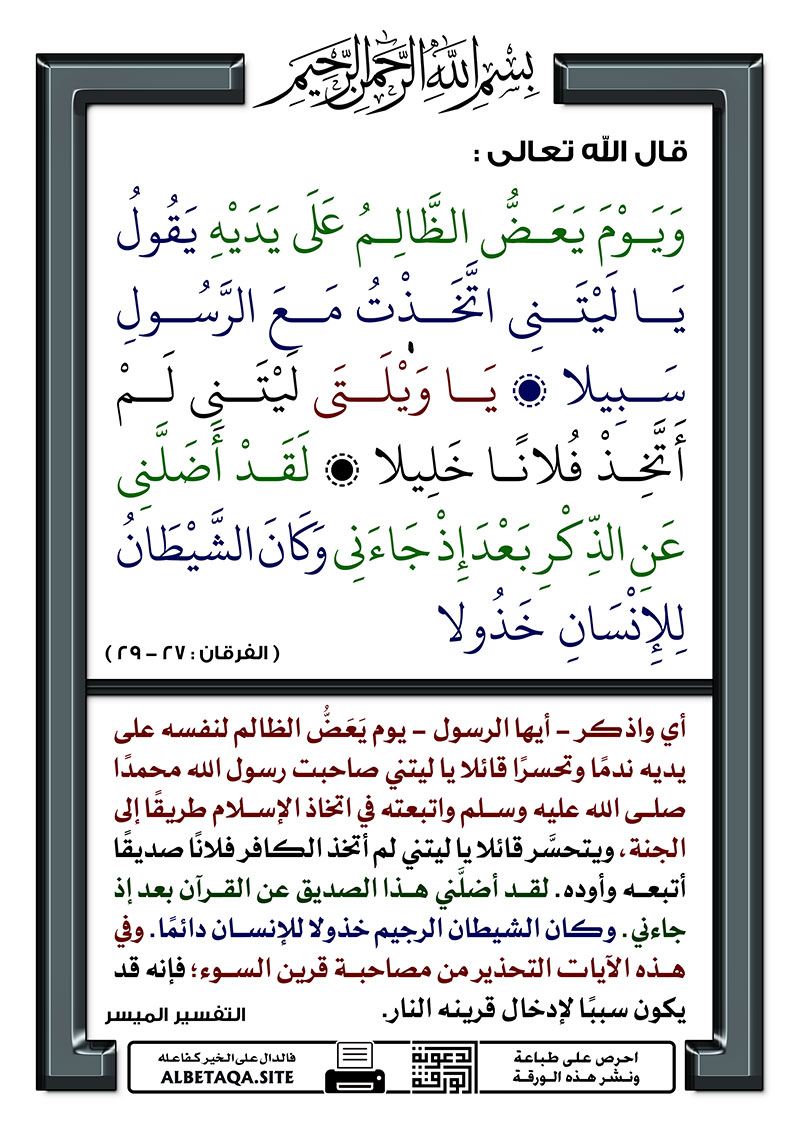 بِسْمِ اللَّهِ الرَّحْمَنِ الرَّحِيمِ
قال الله تعالى :
وَيَـوْمَ يَـعَـضُّ الظَّالِـمُ عَلَى يَدَيْهِ يَقُولُ
يَـا لَيْتَـنِى اتَّخَـذْتُ مَـعَ الرَّسُـولِ
سَـبِيلا ۝ يَـا وَيْلَـتَى لَيْتَـنِى لَـمْ
أَتَّخِـذْ فُلانًـا خَلِيلا ۝ لَقَـدْ أَضَلَّنِى
عَنِ الذِّكْرِ بَعْدَ إِذْ جَاءَنِى وَكَانَ الشَّيْطَانُ
لِلإِنْسَانِ خَذُولا
( الفرقان : ٢٧ - ٢٩ )
أي واذكـر - أيها الرسول - يوم يَعَضُّ الظالم لنفسه على
يديه ندمًا وتحسرًا قائلا يا ليتني صاحبت رسول الله محمدًا
صلى الله عليه وسلم واتبعته في اتخاذ الإسلام طريقًا إلى
الجنة، ويتحسَّر قائلا يا ليتني لم أتخذ الكافر فلانًا صديقًا
أتبعـه وأوده. لقـد أضلَّني هـذا الصديق عن القـرآن بعد إذ
جاءني. وكان الشيطان الرجيم خذولا للإنسـان دائمًا. وفي
هـذه الآيات التحذير من مصاحبـة قرين السـوء؛ فإنه قد
يكون سببًا لإدخال قرينه النار.
التفسير الميسر
احرص على طباعة
ونشر هذه الورقة
الورقة الدعوية
فالدال على الخير كفاعله
ALBETAQA.SITE